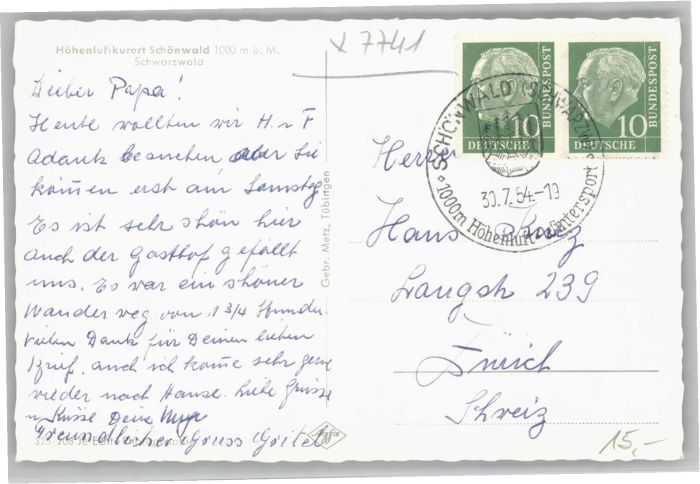 Höhenluftkurort Schönwald 1000 m ü. M.
Schwarzwald
x 7741
Lieber Papa!
Heute wollten wir H. u F
Adank besuchen aber Sie
kom̄en erst am Samstag
Es ist sehr schön hier
auch der Gasthof gefällt
uns. Es war ein schöner
Wander weg von 1 3/4 Stunde.
Vielen Dank für Deinen lieben
Brief. auch ich kom̄e sehr gerne
wieder nach Hause. Liebe Grüsse
u Küsse Deine
Freundlicher Gruss Gritel
Gebr. Metz, Tübingen
Agfa
10
DEUTSCHE
BUNDESPOST
10
DEUTSCHE
BUNDESPOST
SCHÖNWALD (SCHWARZW)
30.7.54.-19
1000m Höhenluft- u Wintersport
Herrn
Hans
Langstr 239
Zürich
Schweiz
15,-